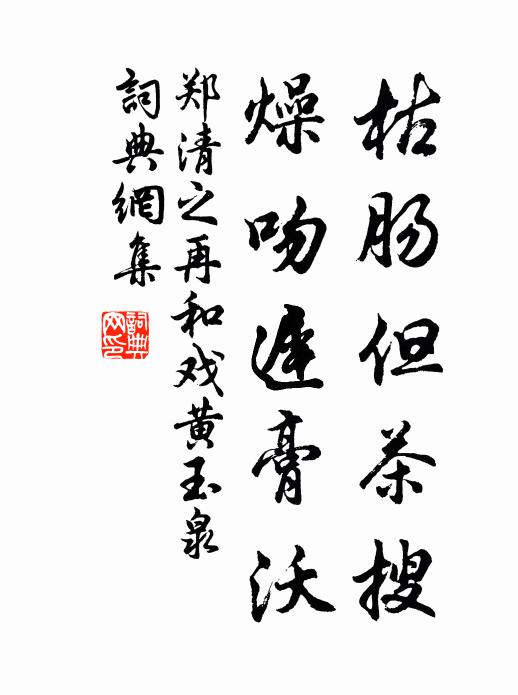 枯肠但茶搜
燥吻遲膏沃
郑清之再和戏黄玉泉
詞典網集
詞典网印